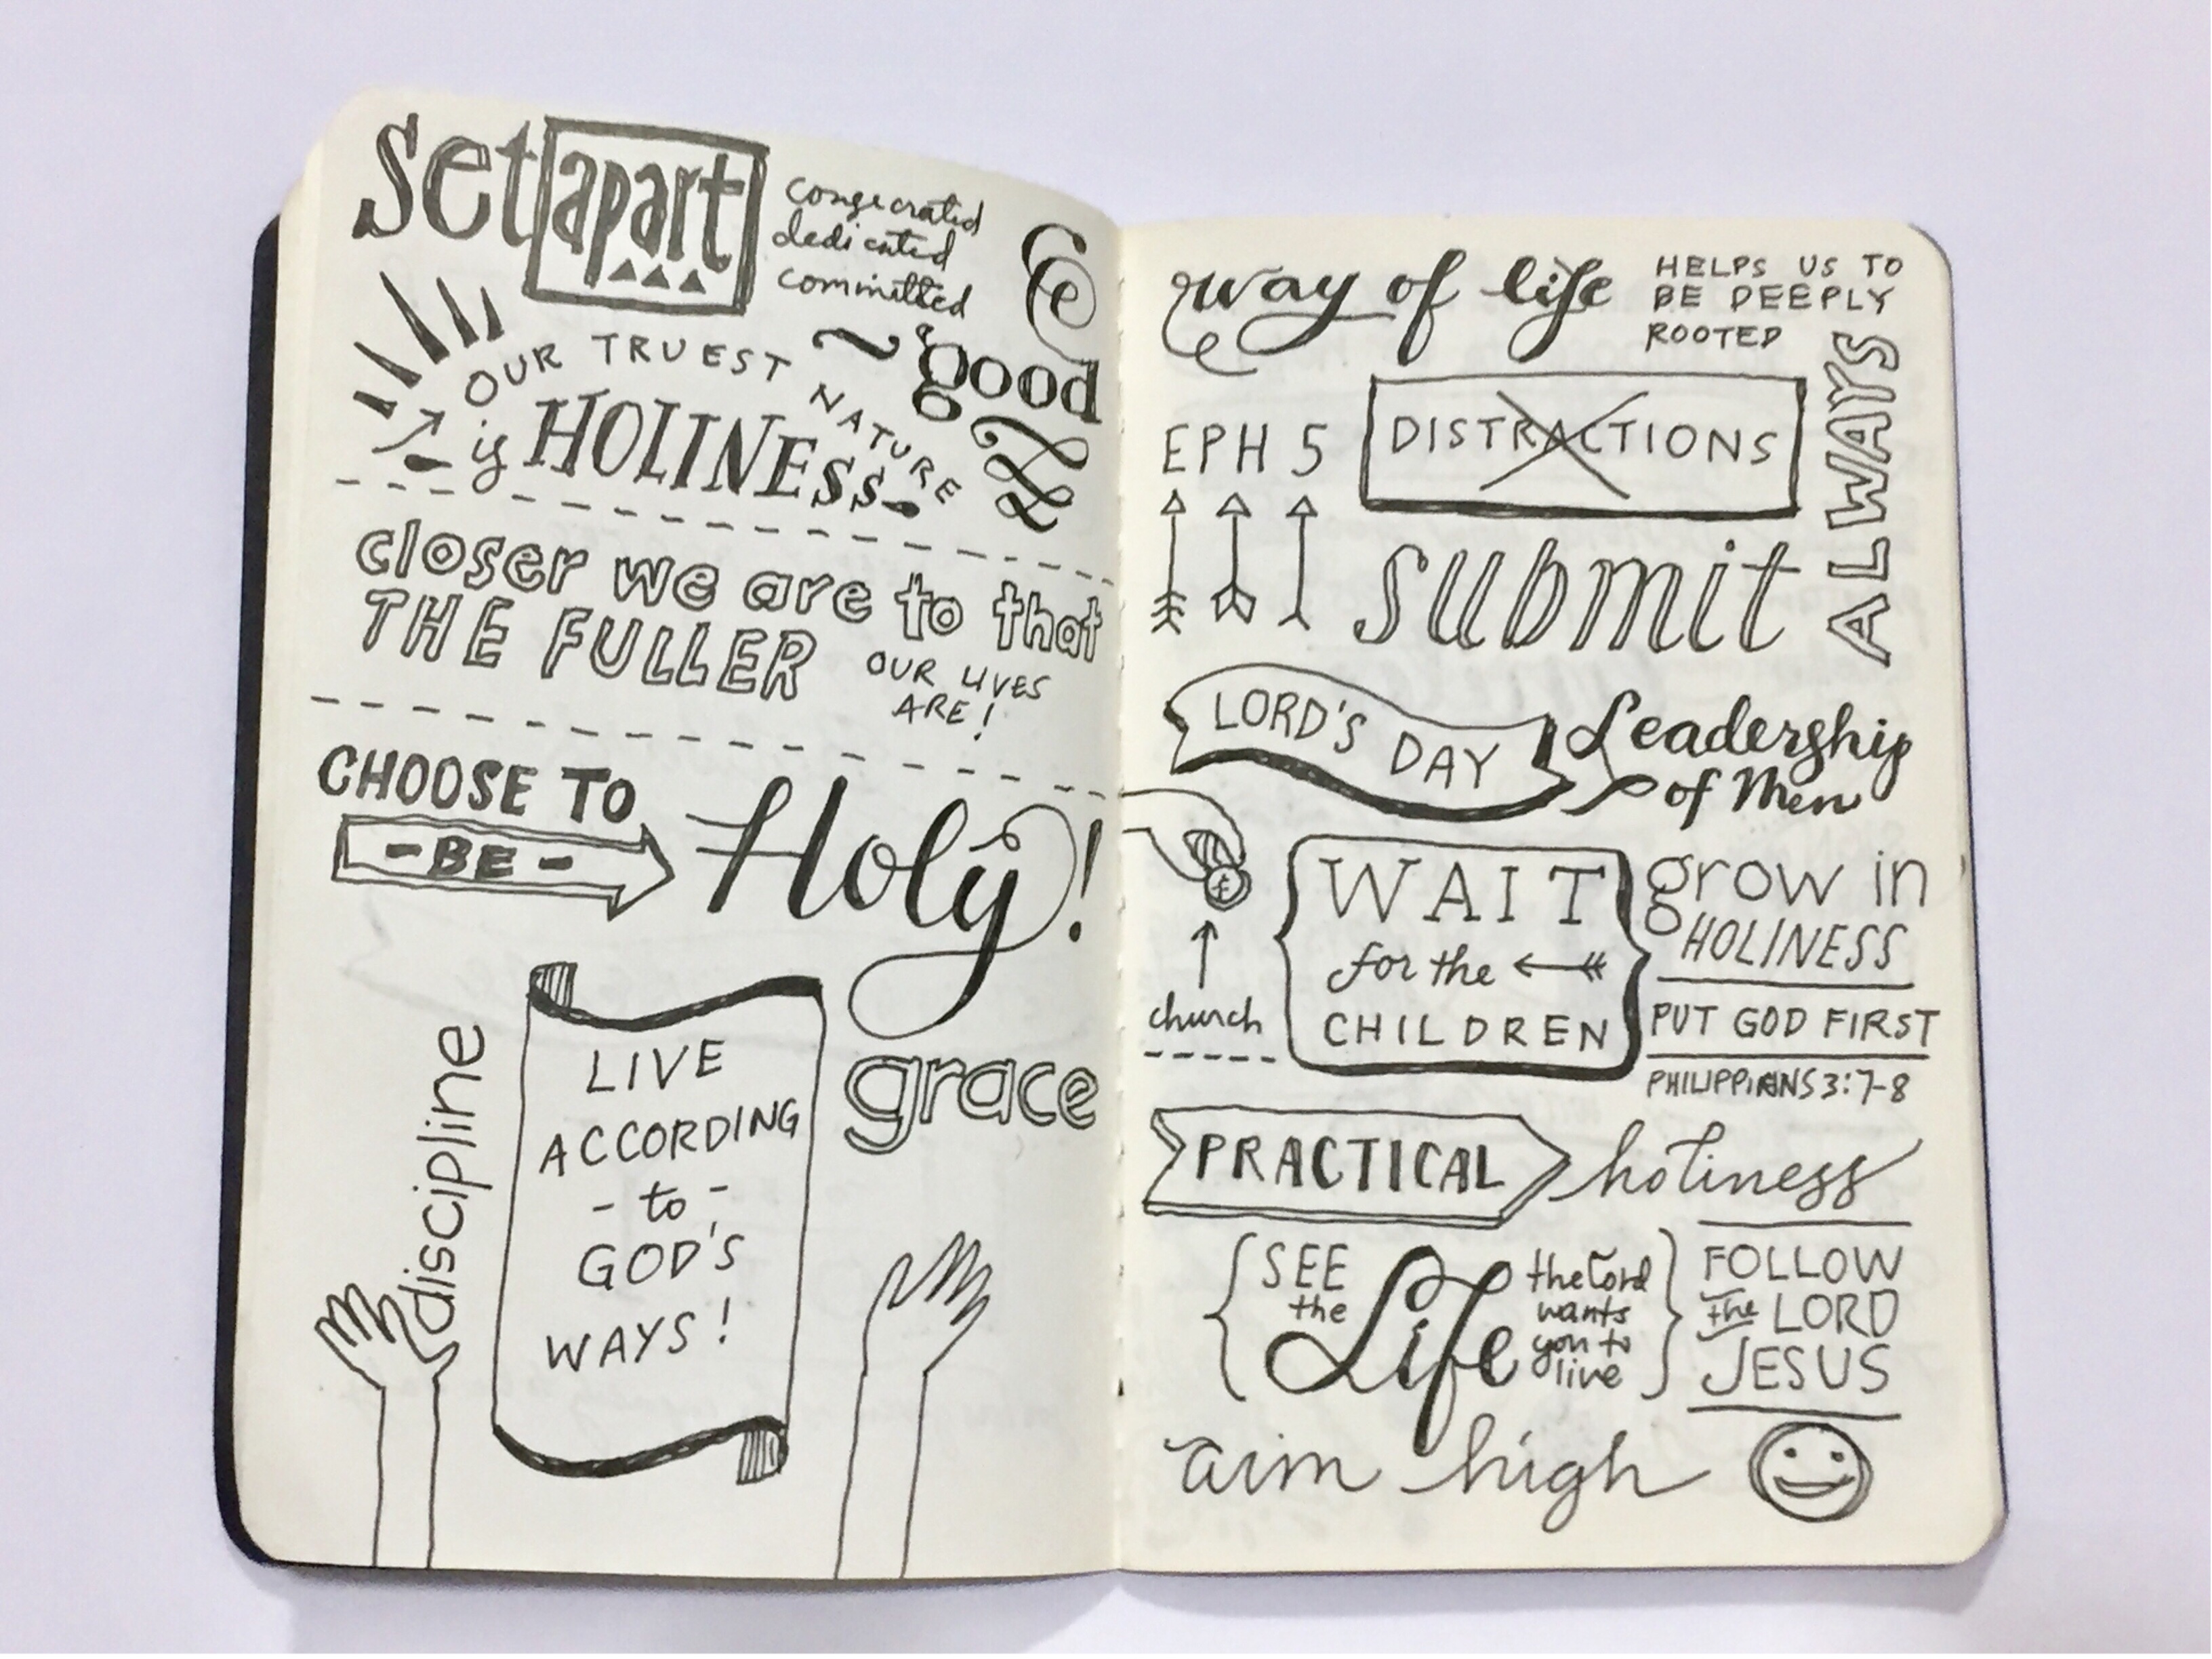 set apart
consecrated
dedicated
committed
& good
OUR TRUEST NATURE
is HOLINESS
closer we are to that
THE FULLER
OUR LIVES
ARE!
CHOOSE TO
- BE -
Holy!
discipline
LIVE
ACCORDING
- to -
GOD'S
WAYS!
grace
way of life
HELPS US TO
BE DEEPLY
ROOTED
EPH 5
DISTRACTIONS
ALWAYS
submit
LORD'S DAY
Leadership
of Men
£
church
WAIT
for the
CHILDREN
grow in
HOLINESS
PUT GOD FIRST
PHILIPPIANS 3:7-8
PRACTICAL
holiness
SEE
the
Life
the Lord
wants
you to
live
FOLLOW
the LORD
JESUS
aim high